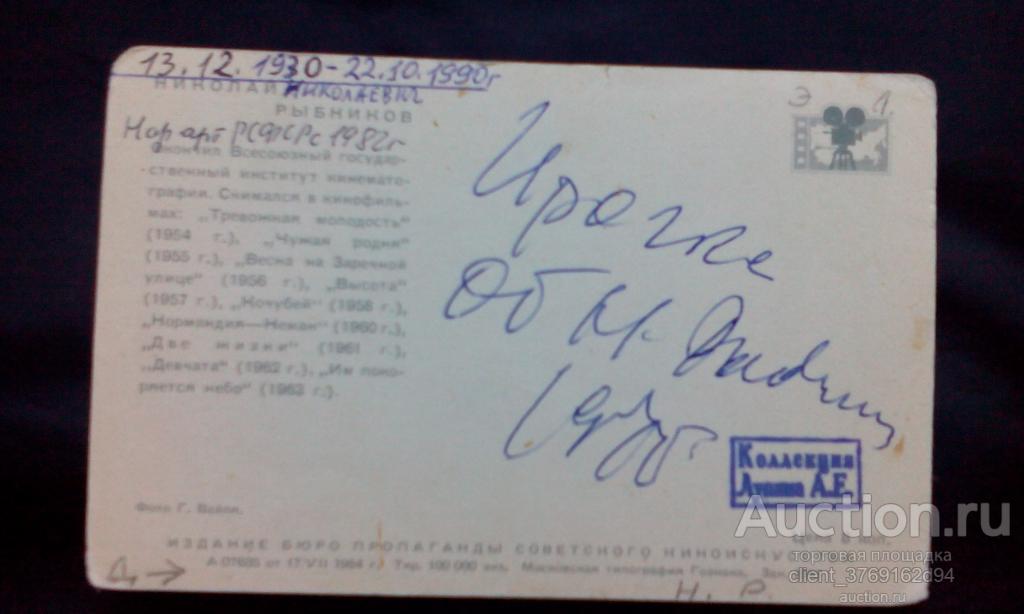 13.12.1930-22.10.1990г
НИКОЛАЙ НИКОЛАЕВИЧ
РЫБНИКОВ
Нар арт РСФСРс 1982г
Окончил Всесоюзный государ-
ственный институт кинемато-
графии. Снимался в кинофиль-
мах: „Тревожная молодость"
(1954 г.), „Чужая родня"
(1955 г.), „Весна на Заречной
улице" (1956 г.), „Высота"
(1957 г.), „Кочубей" (1958 г.),
„Нормандия—Неман" (1960 г.),
„Две жизни" (1961 г.),
„Девчата" (1962 г.), „Им поко-
ряется небо" (1963 г.).
Фото Г. Вайля.
Э Л
От
Коллекция
А.Е.
Цена 8 коп.
ИЗДАНИЕ БЮРО ПРОПАГАНДЫ СОВЕТСКОГО КИНОИСКУС
А 07685 от 17/VII 1964 г. Тир. 100 000 экз. Московская типография Гознака. Зак.
Д →
Н. Р.
Auction.ru
торговая площадка
client_3769162d94
auction.ru